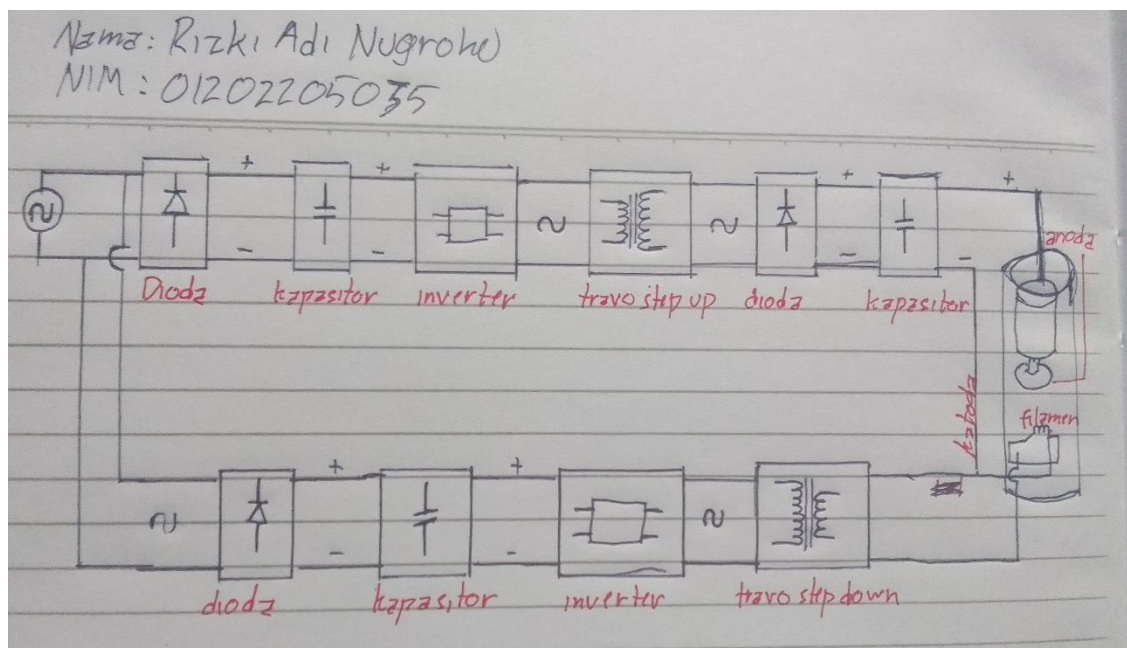 Nama: Rizki Adi Nugroho
NIM: 01202205035
+ + + +
~ ~ ~
- - - -
anoda
Dioda kapasitor inverter travo step up dioda kapasitor
katoda
filamen
+ +
~ ~
- -
dioda kapasitor inverter travo step down